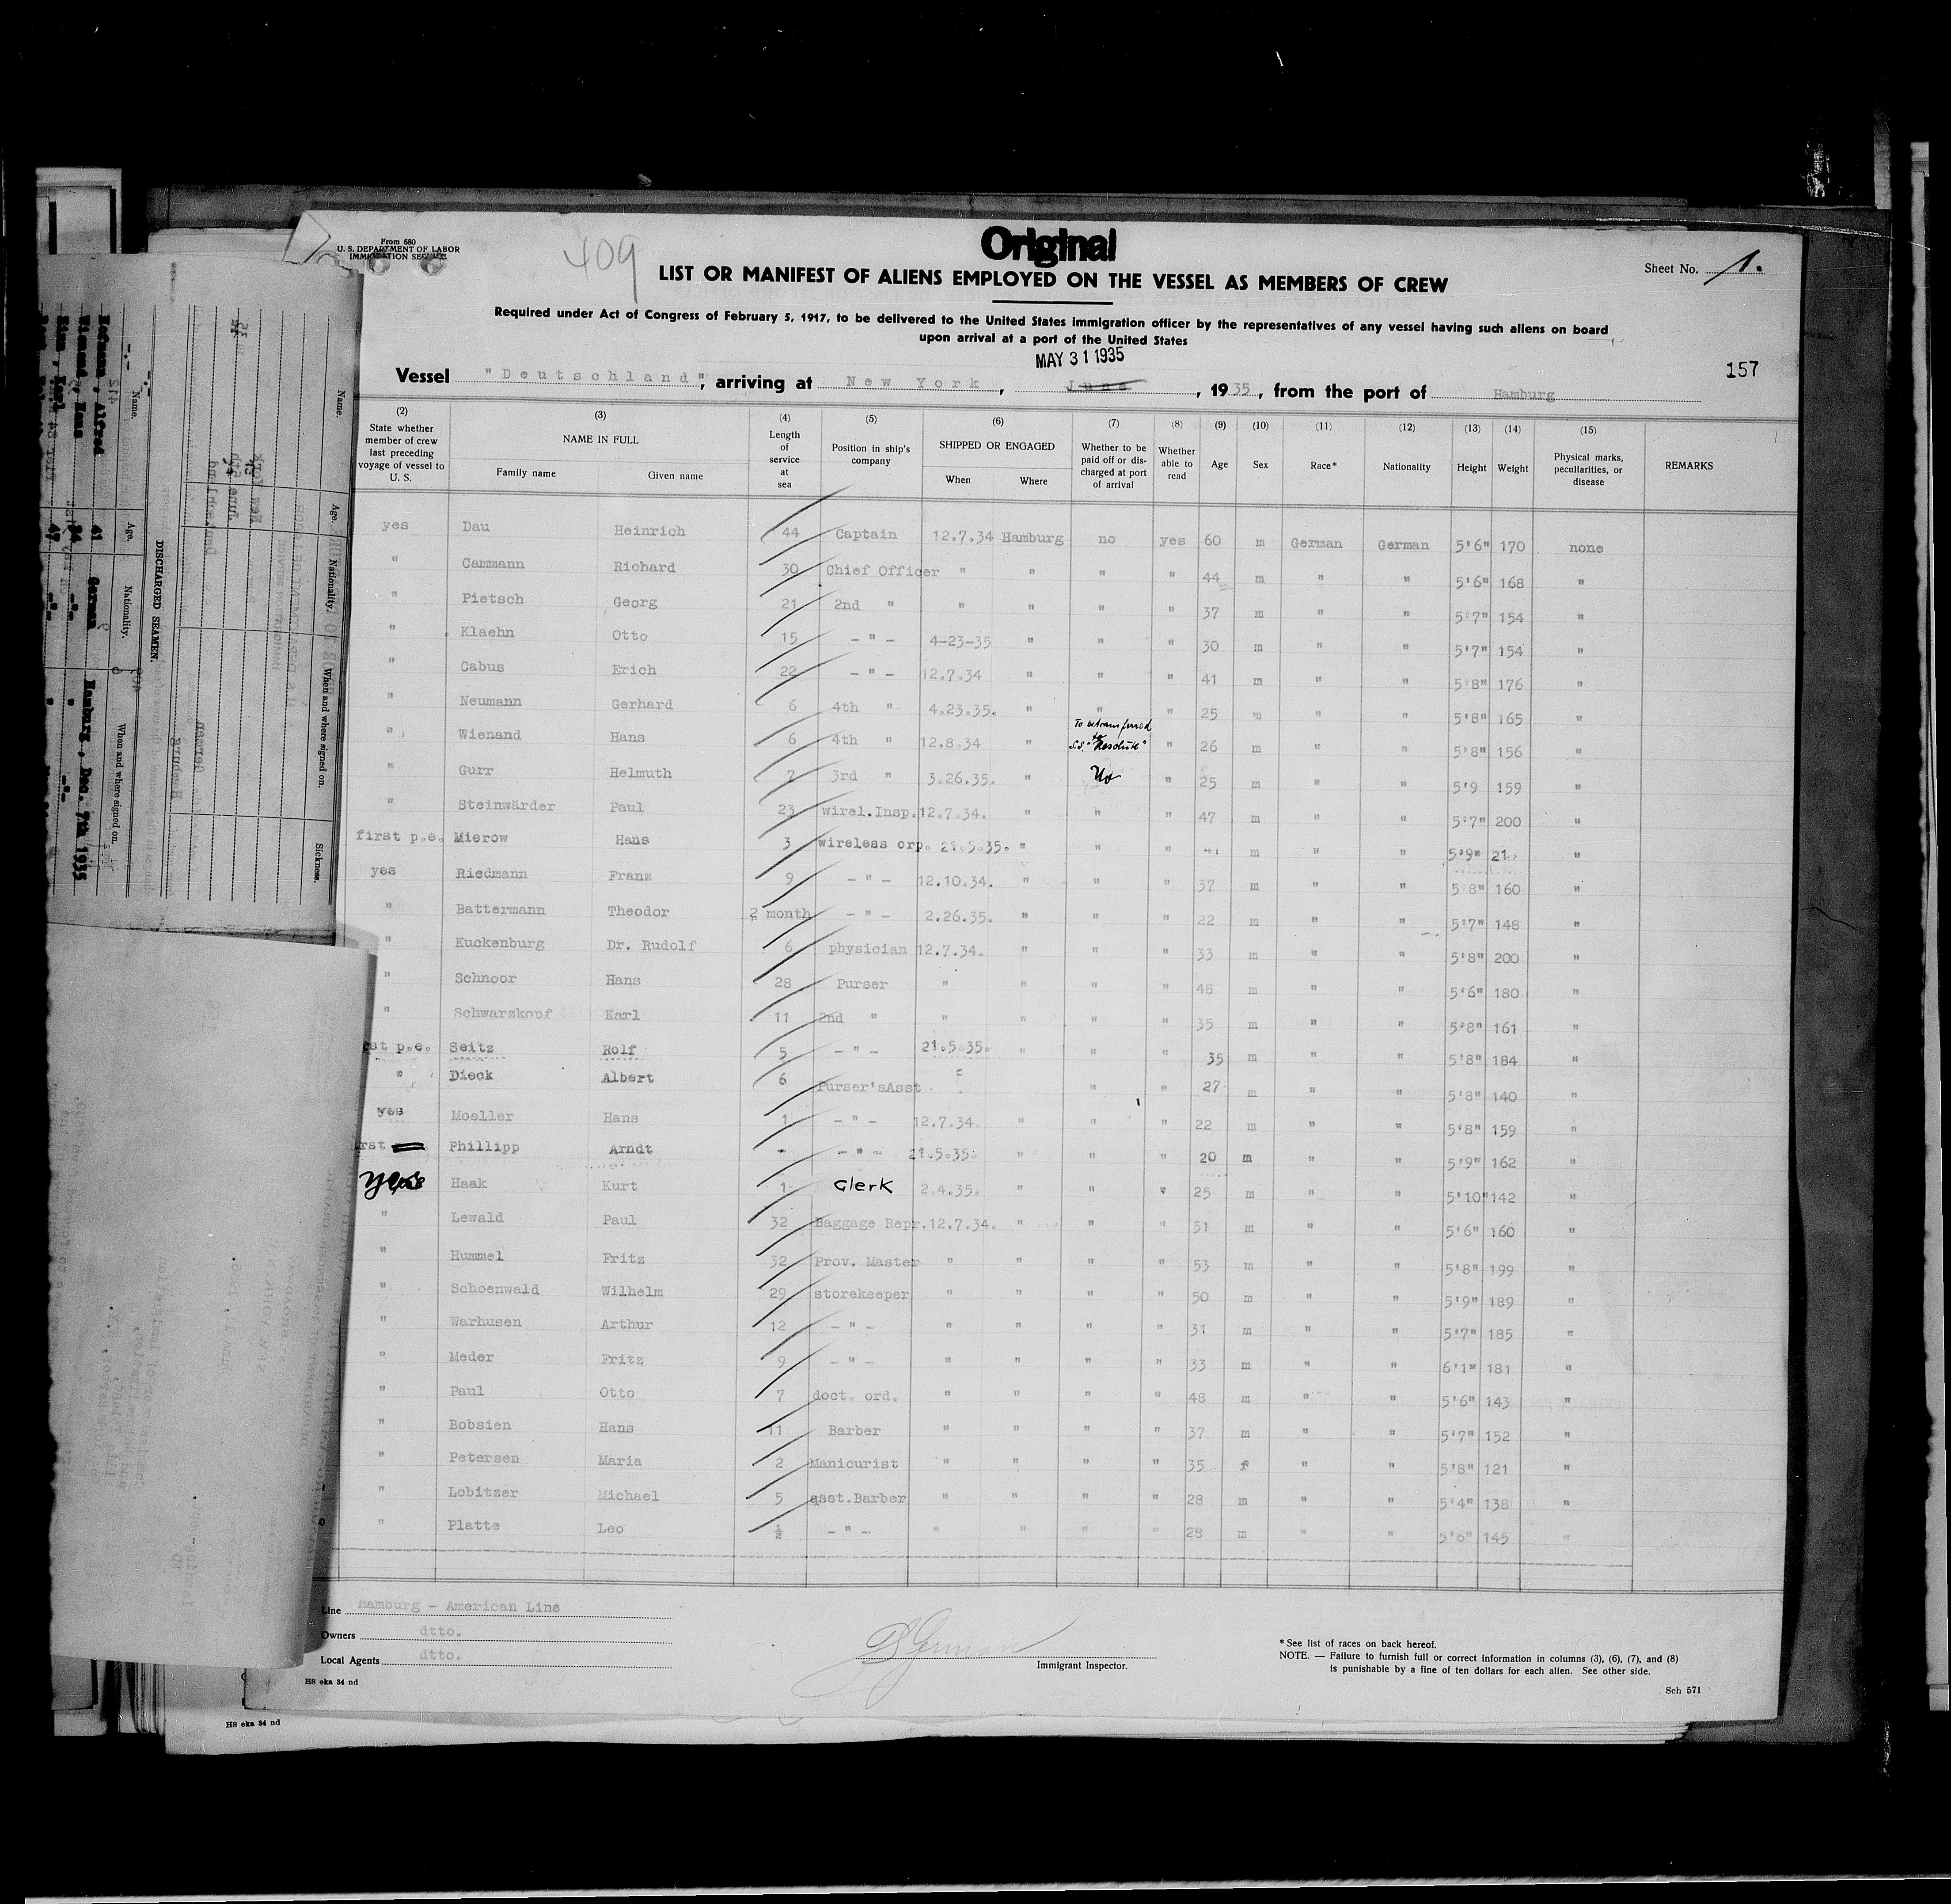 From 680
U. S. DEPARTMENT OF LABOR
IMMIGRATION SERVICE
409
Original
LIST OR MANIFEST OF ALIENS EMPLOYED ON THE VESSEL AS MEMBERS OF CREW
Sheet No. 1.
Required under Act of Congress of February 5, 1917, to be delivered to the United States immigration officer by the representatives of any vessel having such aliens on board
upon arrival at a port of the United States
MAY 31 1935
157
Vessel "Deutschland", arriving at New York, June, 1935, from the port of Hamburg
(2) State whether member of crew last preceding voyage of vessel to U. S.
(3) NAME IN FULL Family name Given name
(4) Length of service at sea
(5) Position in ship's company
(6) SHIPPED OR ENGAGED When Where
(7) Whether to be paid off or discharged at port of arrival
(8) Whether able to read
(9) Age
(10) Sex
(11) Race*
(12) Nationality
(13) Height
(14) Weight
(15) Physical marks, peculiarities, or disease
REMARKS
yes Dau Heinrich 44 Captain 12.7.34 Hamburg no yes 60 m German German 5'6" 170 none
" Cammann Richard 30 Chief Officer " " " " 44 m " " 5'6" 168 "
" Pietsch Georg 21 2nd " " " " " 37 m " " 5'7" 154 "
" Klaehn Otto 15 -"- 4-23-35 " " " 30 m " " 5'7" 154 "
" Cabus Erich 22 -"- 12.7.34 " " " 41 m " " 5'8" 176 "
" Neumann Gerhard 6 4th " 4.23.35. " " " 25 m " " 5'8" 165 "
" Wienand Hans 6 4th " 12.8.34 " To be transferred to S.S. "Resolute" " 26 m " " 5'8" 156 "
" Gurr Helmuth 7 3rd " 3.26.35. " No " 25 m " " 5'9 159 "
" Steinwärder Paul 23 wirel.Insp. 12.7.34. " " " 47 m " " 5'7" 200 "
first p.e. Mierow Hans 3 wireless orp. 21.5.35. " " " m " " 5'9" "
yes Riedmann Franz 9 -"- 12.10.34. " " " 37 m " " 5'8" 160 "
" Battermann Theodor 2 month -"- 2.26.35. " " " 22 m " " 5'7" 148 "
" Kuckenburg Dr. Rudolf 6 physician 12.7.34. " " " 33 m " " 5'8" 200 "
" Schnoor Hans 28 Purser " " " " 48 m " " 5'6" 180 "
" Schwarzkopf Karl 11 2nd " " " " " 35 m " " 5'8" 161 "
st p.e. Seitz Rolf 5 -"- 21.5.35. " " " 35 m " " 5'8" 184 "
" Dieck Albert 6 Purser'sAsst " " " 27 m " " 5'8" 140 "
yes Moeller Hans 1 -"- 12.7.34. " " " 22 m " " 5'8" 159 "
rst Phillipp Arndt - -"- 21.5.35. " " " 20 m " " 5'9" 162 "
yes Haak Kurt 1 Clerk 2.4.35. " " " 25 m " " 5'10" 142 "
" Lewald Paul 32 Baggage Repr. 12.7.34. " " " 51 m " " 5'6" 160 "
" Hummel Fritz 32 Prov. Master " " " " 53 m " " 5'8" 199 "
" Schoenwald Wilhelm 29 storekeeper " " " " 50 m " " 5'9" 189 "
" Warhusen Arthur 12 -"- " " " " 31 m " " 5'7" 185 "
" Meder Fritz 9 -"- " " " " 33 m " " 6'1" 181 "
" Paul Otto 7 doct. ord. " " " " 48 m " " 5'6" 143 "
" Bobsien Hans 11 Barber " " " " 37 m " " 5'7" 152 "
" Petersen Maria 2 Manicurist " " " " 35 f " " 5'8" 121 "
" Lobitzer Michael 5 asst.Barber " " " " 28 m " " 5'4" 138 "
" Platte Leo ½ -"- " " " " 28 m " " 5'6" 145 "
Line Hamburg - American Line
Owners dtto.
Local Agents dtto.
Immigrant Inspector.
*See list of races on back hereof.
NOTE. — Failure to furnish full or correct information in columns (3), (6), (7), and (8)
is punishable by a fine of ten dollars for each alien. See other side.
HS eka 34 nd
Sch 571
HS eka 34 nd
DISCHARGED SEAMEN.
Name. Age. Nationality. When and where signed on.
Name. Age. Nationality. When and where signed on. Sickness.
Alfred 41 German Hamburg, Dec. 7th 1935
Hans 34